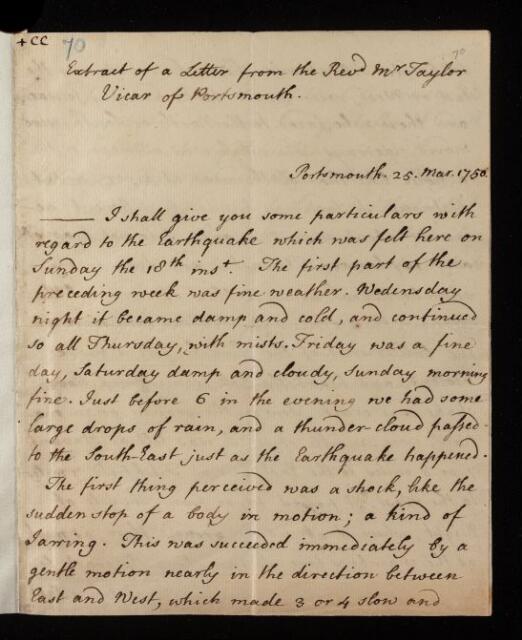 +cc 70
70
Extract of a Letter from the Revd Mr Taylor
Vicar of Portsmouth.
Portsmouth. 25. Mar. 1750.
—— I shall give you some particulars with
regard to the Earthquake which was felt here on
Sunday the 18th inst. The first part of the
preceding week was fine weather. Wedensday
night it became damp and cold, and continued
so all Thursday, with mists. Friday was a fine
day, Saturday damp and cloudy, Sunday morning
fine. Just before 6 in the evening we had some
large drops of rain, and a thunder-cloud passed
to the South-East just as the Earthquake happened.
The first thing perceived was a shock, like the
sudden stop of a body in motion; a kind of
Jarring. This was succeeded immediately by a
gentle motion nearly in the direction between
East and West, which made 3 or 4 slow and